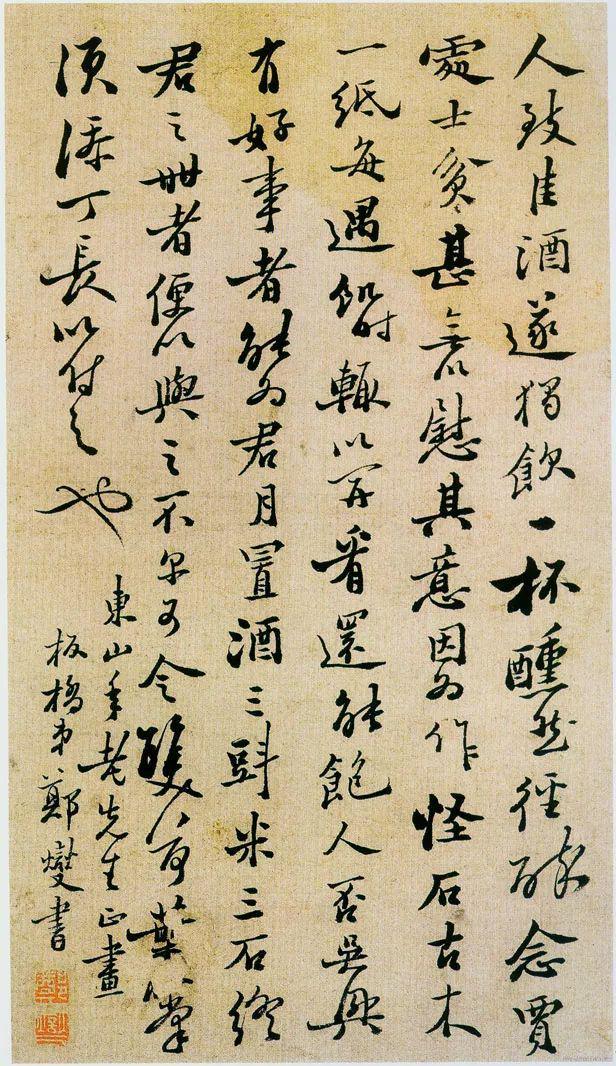 人致佳酒遂獨飲一杯醺然徑醉念賈
處士貧甚无以慰其意因為作怪石古木
一紙每遇飢時輒以開看還能飽人否吳興
有好事者能為君月置酒三斗米三石終
君之世者便以與之不尔可令雙荷葉
須添丁長以付之也
東山年老先生正畫
板橋弟鄭燮書